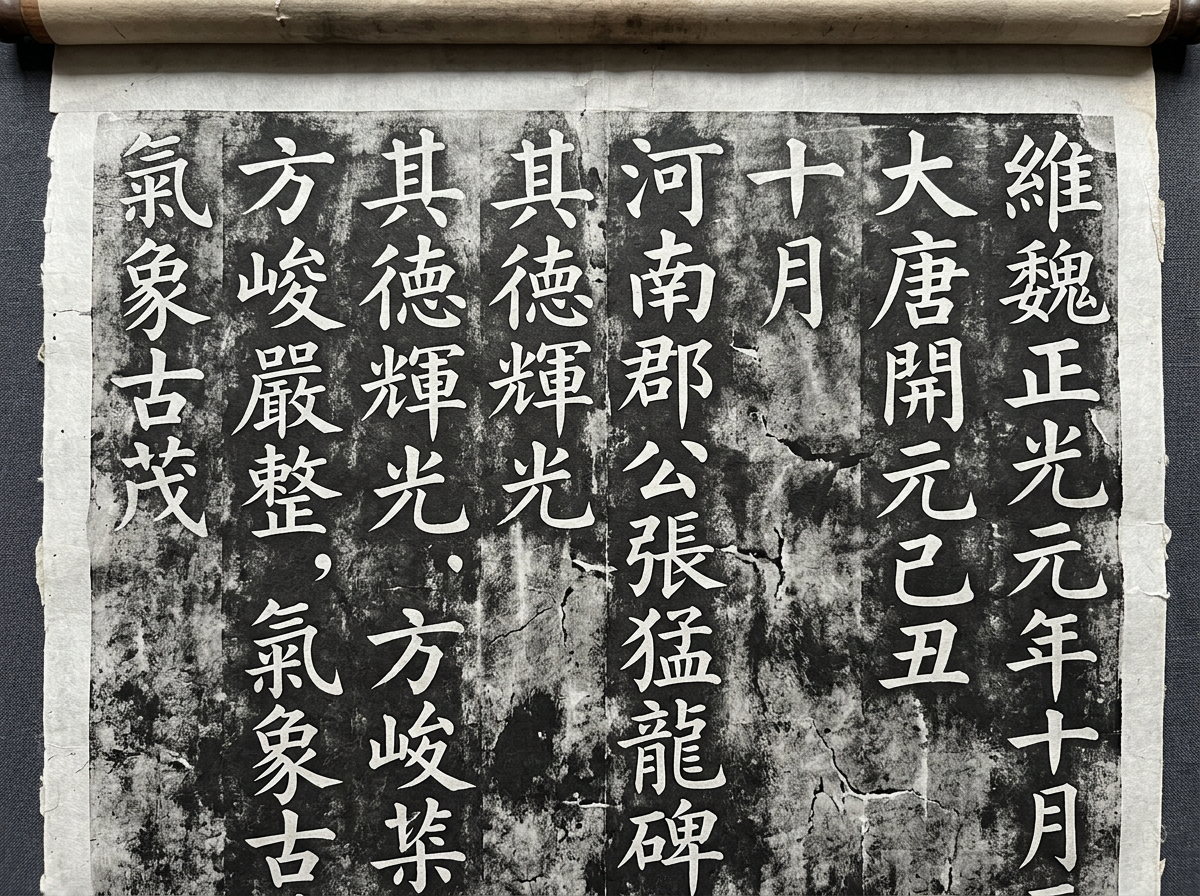 維魏正光元年十月
大唐開元己丑
十月
河南郡公張猛龍碑
其德輝光
其德輝光．方峻
方峻嚴整，氣象古
氣象古茂